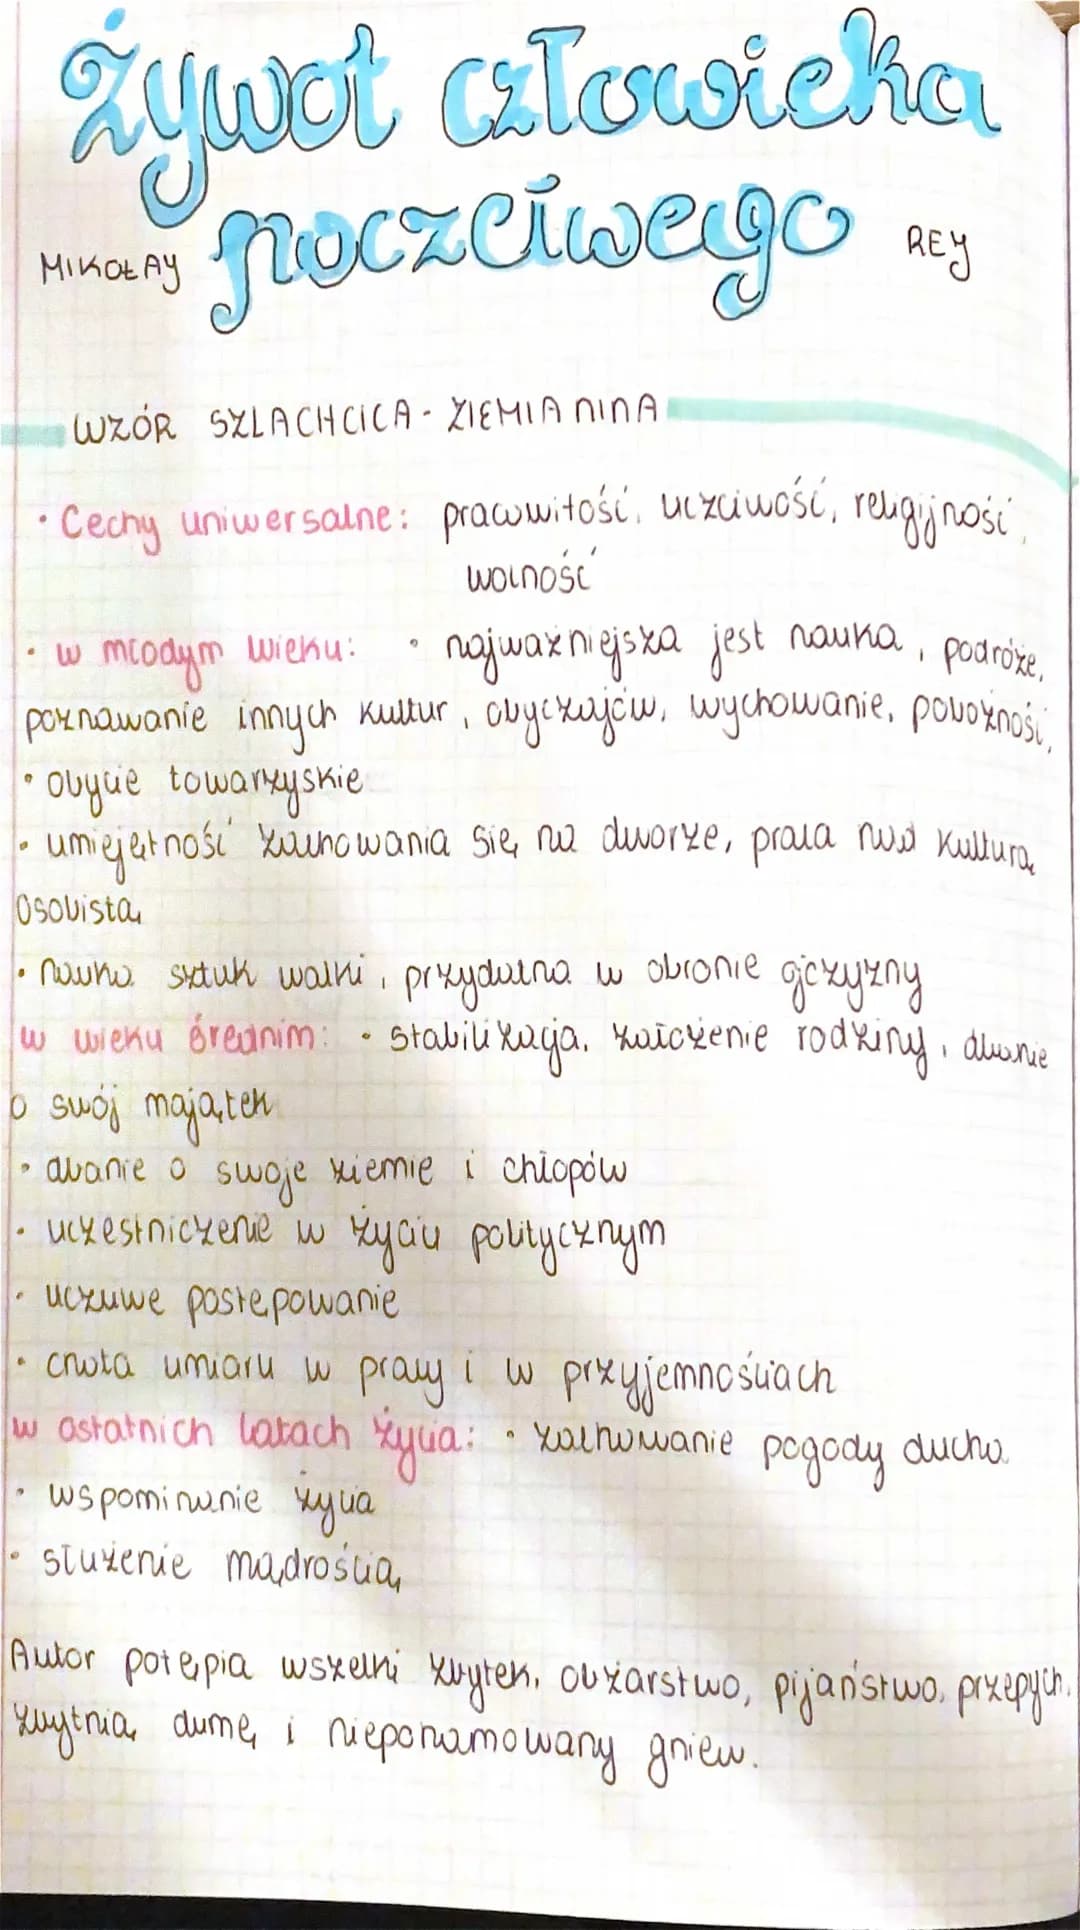 Żywot człowieka
poczciwego
MIKOŁAY REY
WZÓR SZLACHCICA - ZIEMIANINA
· Cechy uniwersalne: pracowitość, uczciwość, religijność,
wolność
· w młodym wieku: · najważniejsza jest nauka, podróże,
poznawanie innych kultur, obyczajów, wychowanie, pobożność,
· obycie towarzyskie
· umiejętność zachowania się na dworze, praca nad kulturą
osobistą
· nauka sztuk walki, przydatna w obronie ojczyzny
w wieku średnim: · stabilizacja, założenie rodziny, dbanie
o swój majątek
· dbanie o swoje ziemie i chłopów
· uczestniczenie w życiu politycznym
· uczciwe postępowanie
· cnota umiaru w pracy i w przyjemnościach
w ostatnich latach życia: · zachowanie pogody ducha
· wspominanie życia
· służenie mądrością
Autor potępia wszelki zbytek, obżarstwo, pijaństwo, przepych,
zbytnią dumę i niepohamowany gniew.